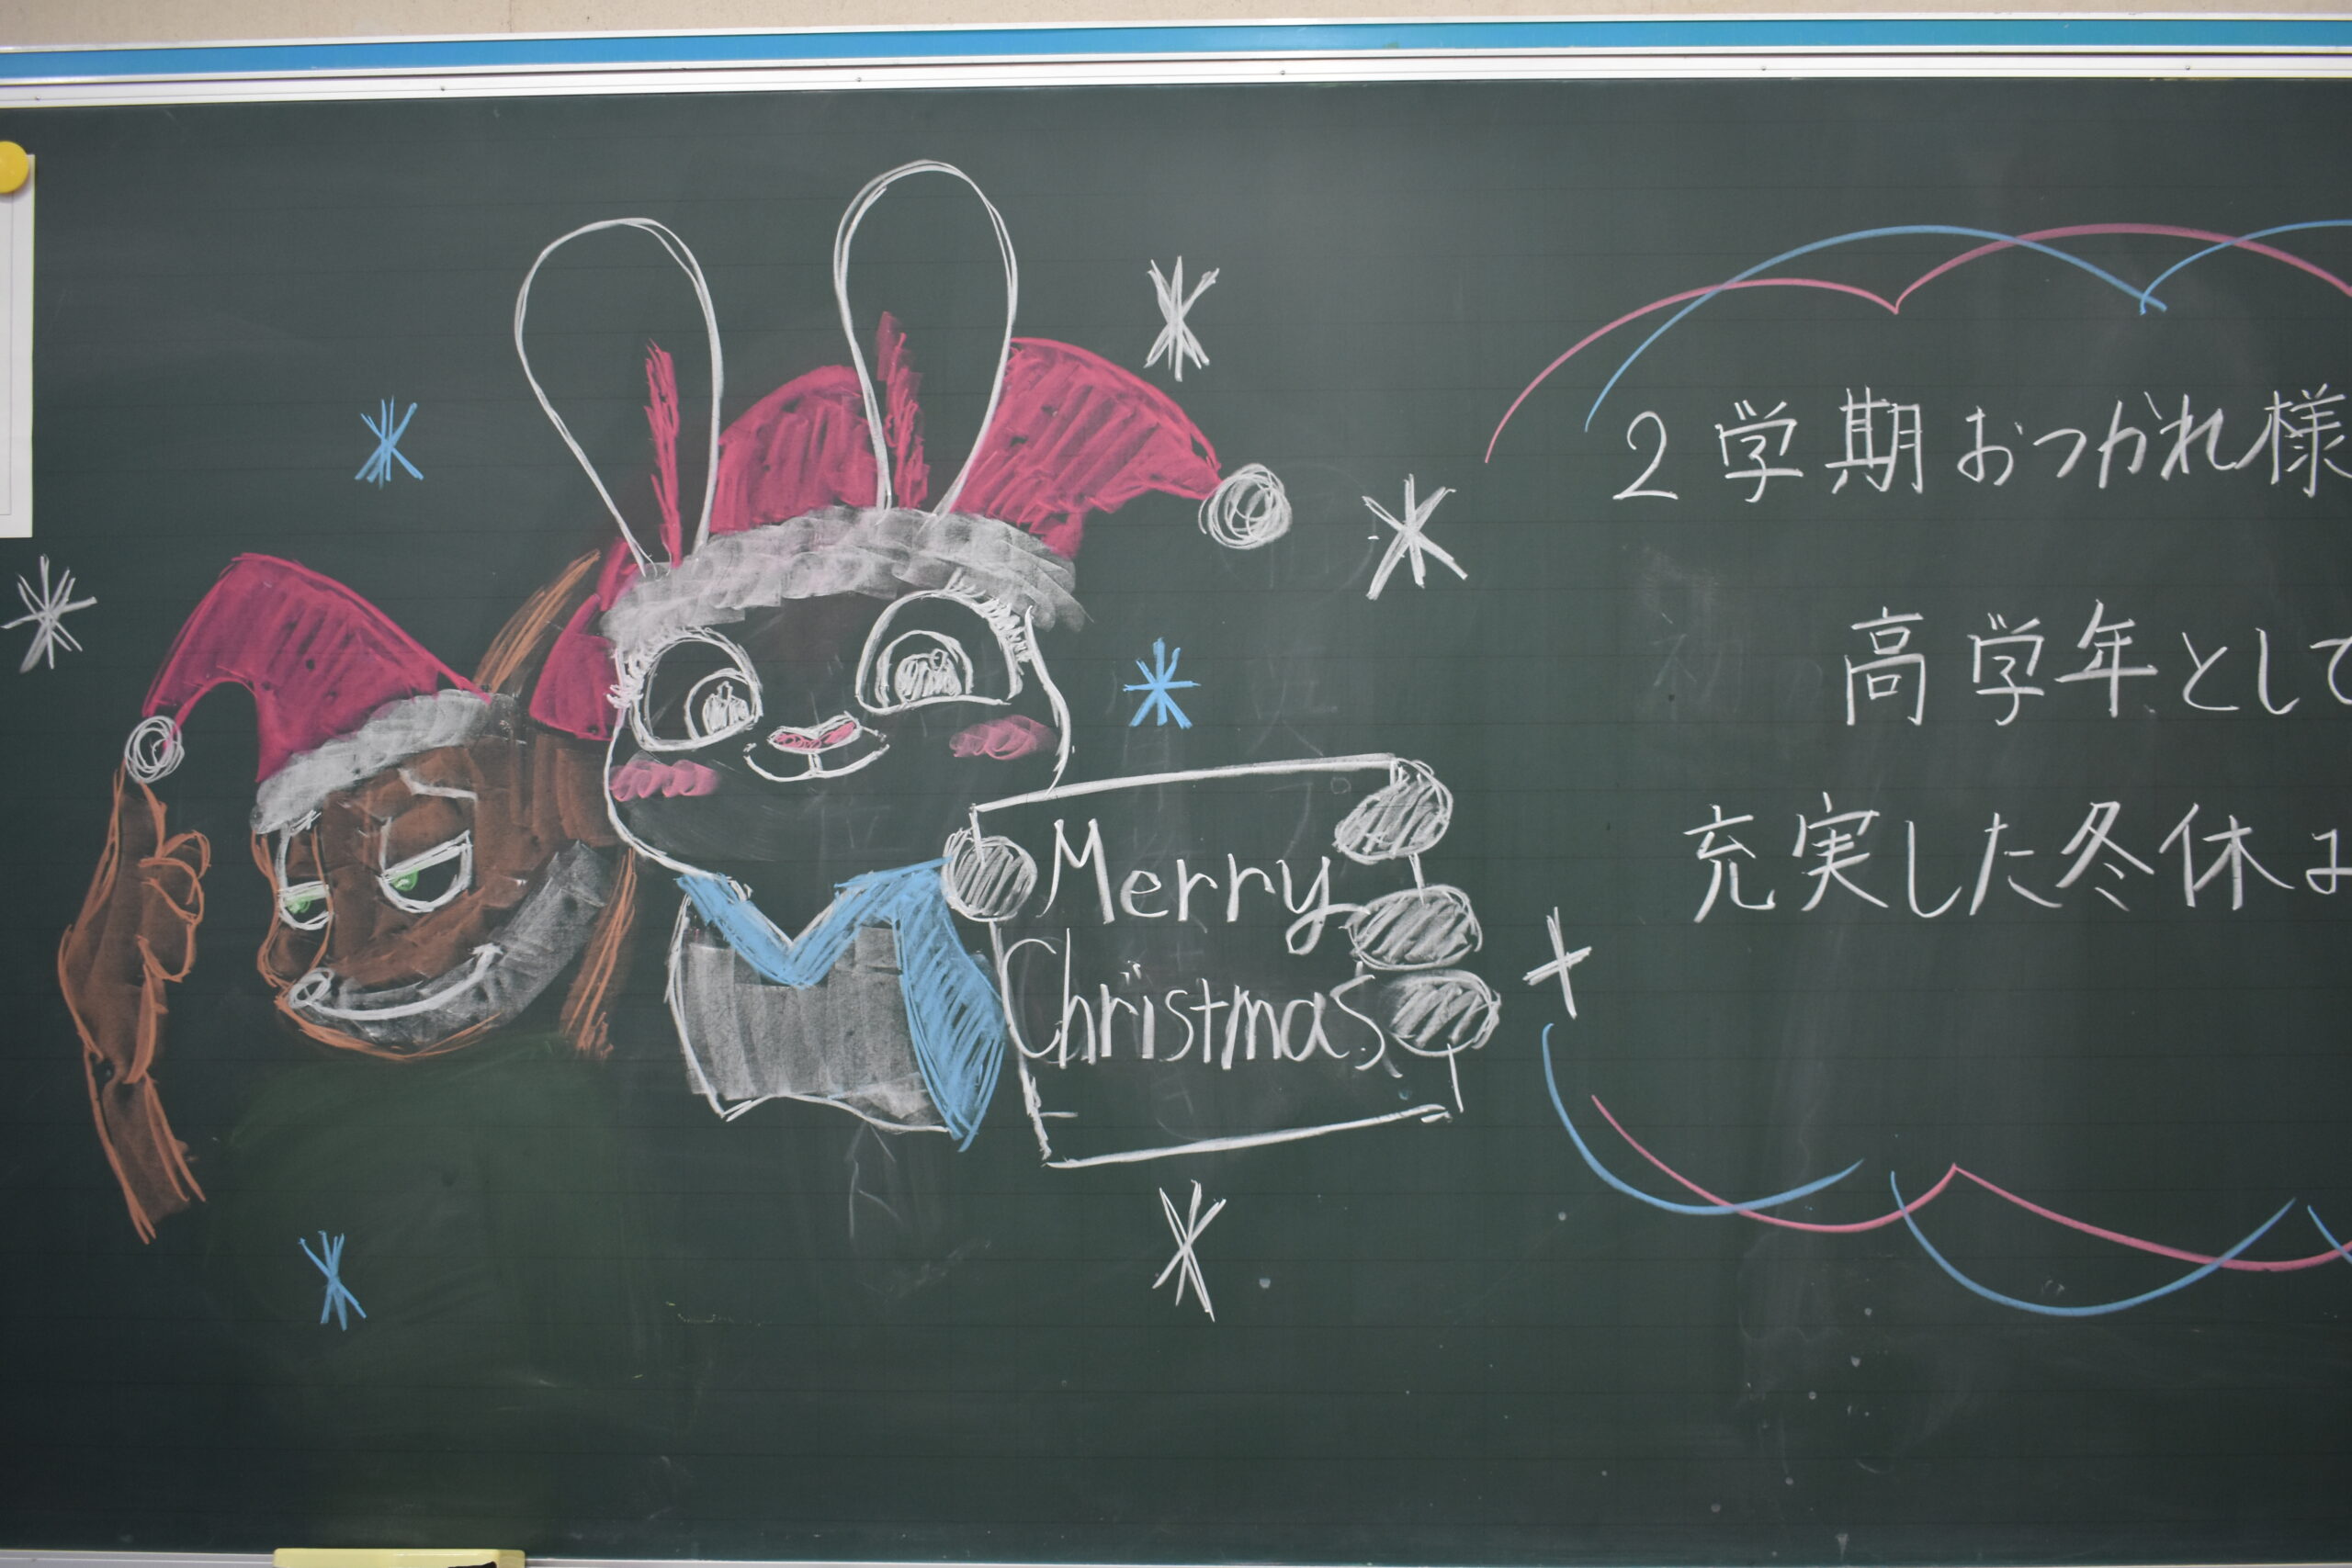 Merry
Christmas
2学期おつかれ様
高学年として
充実した冬休